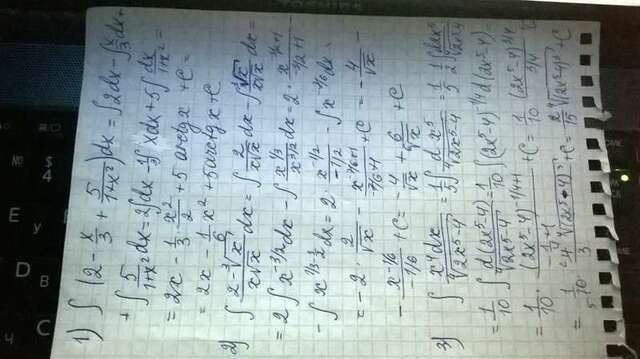 1) ∫ (2 - x/3 + 5/(1+x²))dx = ∫2dx - ∫x/3 dx +
+ ∫ 5/(1+x²) dx = 2∫dx - 1/3 ∫xdx + 5∫ dx/(1+x²) =
= 2x - 1/3 · x²/2 + 5 arctgx + C =
= 2x - 1/6 x² + 5arctgx + C
2) ∫ (2-∛x)/(x√x) dx = ∫ 2/(x√x) dx - ∫ ∛x/(x√x) dx =
= 2∫x^(-3/2)dx - ∫ x^(1/3)/x^(3/2) dx = 2 · x^(-3/2+1)/(-3/2+1) -
- ∫ x^(1/3-3/2) dx = 2 · x^(-1/2)/(-1/2) - ∫x^(-7/6)dx =
= -2 · 2/√x - x^(-7/6+1)/(-7/6+1) + C = -4/√x -
- x^(-1/6)/(-1/6) + C = -4/√x + 6/⁶√x + C
3) ∫ x⁴dx/⁴√(2x⁵-4) = 1/5 ∫ dx⁵/⁴√(2x⁵-4) = 1/5 · 1/2 ∫ d2x⁵/⁴√(2x⁵-4)
= 1/10 ∫ d(2x⁵-4)/⁴√(2x⁵-4) = 1/10 ∫(2x⁵-4)^(-1/4) d(2x⁵-4)
= 1/10 · (2x⁵-4)^(-1/4+1)/(-1/4+1) + C = 1/10 (2x⁵-4)^(3/4)/(3/4)
= 1/10 · 4 ⁴√(2x⁵-4)³/3 + C = 2/15 ⁴√(2x⁵-4)³ + C